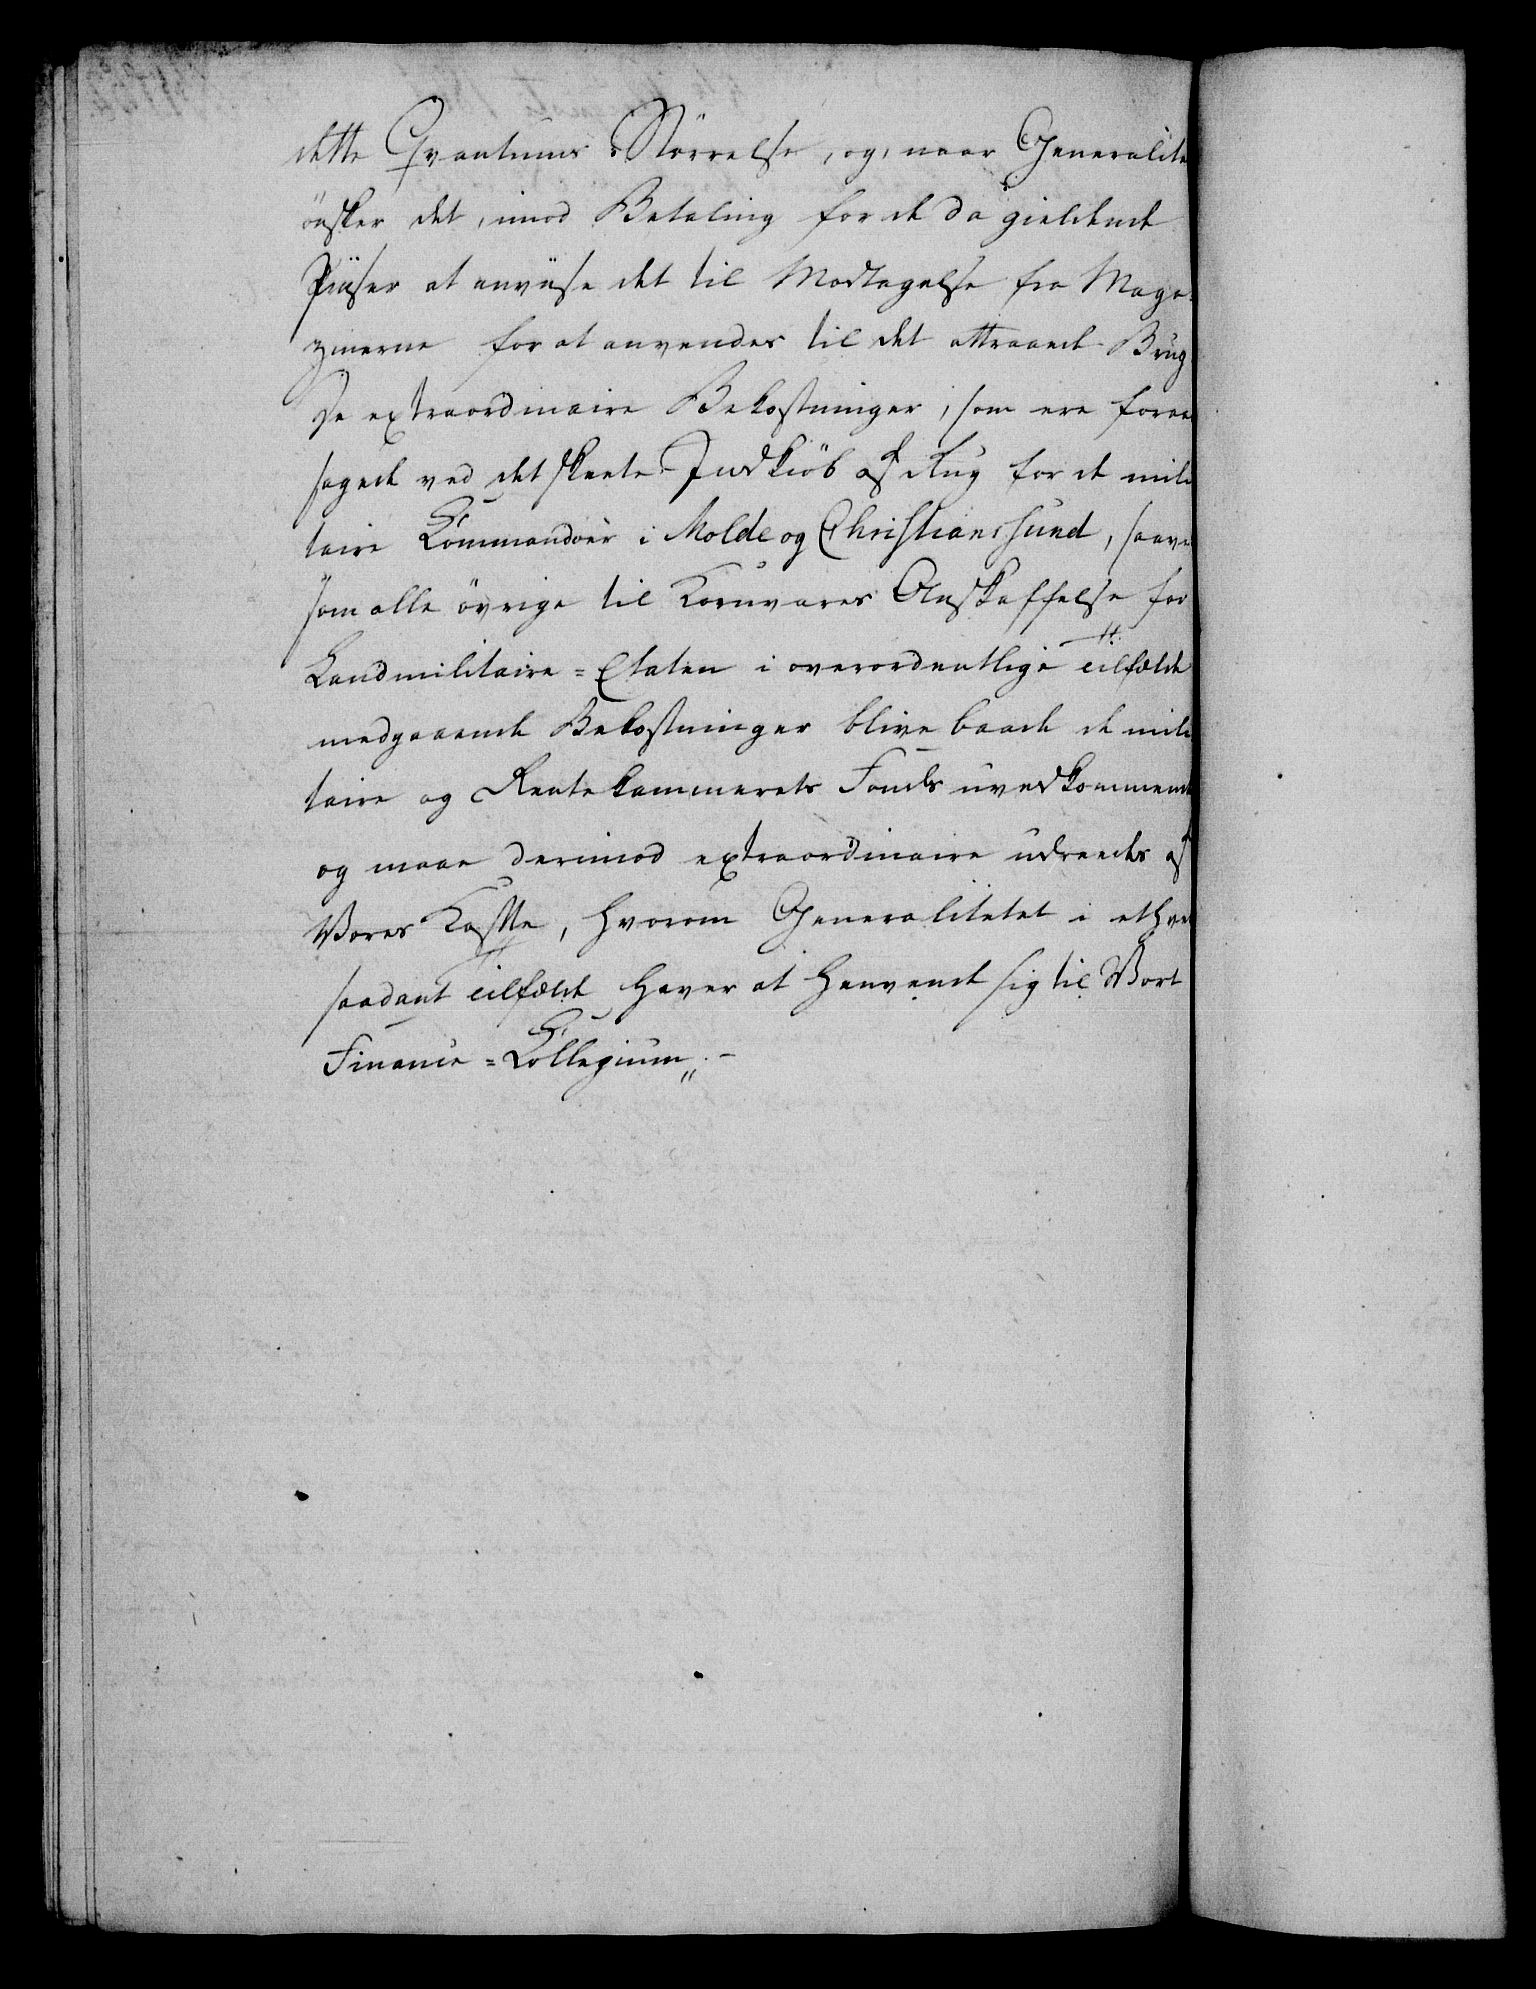 dette Qvantums Størrelse, og, naar Generalite
ønsker det, imod Betaling for de da gieldende
Priiser at anviise det til Modtagelse fra Maga-
zinerne for at anvendes til det attraaede Brug.
De extraordinaire Bekostninger, som ere foraar
sagede ved det skeete Indkiöb af Rug for de mili
taire Kommandoer i Molde og Christianssund, saavel
som alle övrige til Kornvares Anskaffelse for
Landmilitaire=Etaten i overordentlige Tilfælde
medgaaende Bekostninger blive baade de mili
taire og Rentekammerets Fonds uvedkommende
og maae derimod extraordinaire udredes af
Vores Kasse, hvorom Generalitetet i ethvert
saadant Tilfælde haver at henvende sig til Vort
Finance=Kollegium". -